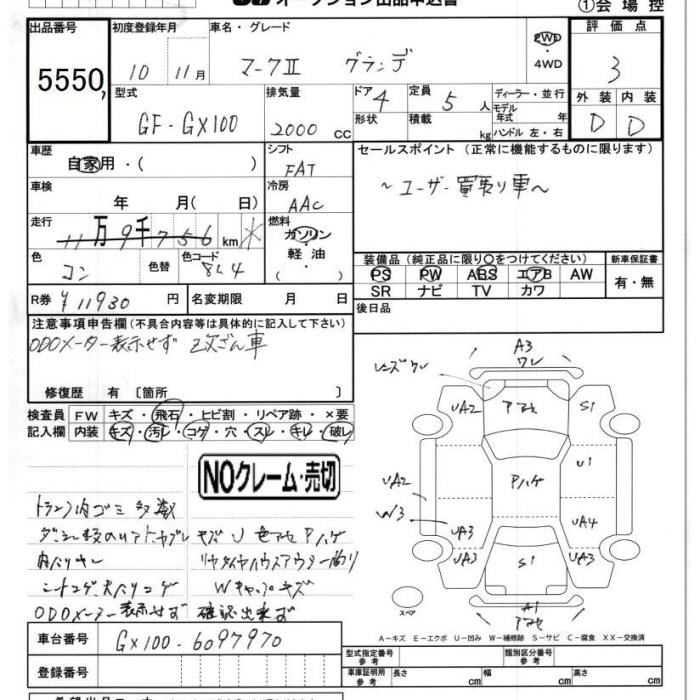 オークション出品申込書
①会場控
出品番号 初度登録年月 車名・グレード 評価点
5550 10 11月 マークII グランデ FWD 4WD 3
型式 排気量 ドア 4 定員 5人 ディーラー・並行 外装 内装
GF-GX100 2000cc 形状 積載 kg モデル年式 年 ハンドル 左・右 D D
車歴 シフト セールスポイント(正常に機能するものに限ります)
自家用・( ) FAT
車検 冷房 ～ユーザー買取り車～
年 月( 日) AAC
走行 燃料
11万9千756km ※ ガソリン
色 色替 色コード 軽油
コン 8L4 ( )
装備品(純正品に限り○をつけてください) 新車保証書
PS PW ABS エアB AW 有・無
SR ナビ TV カワ
R券 ¥11930円 名変期限 月 日 後日品
注意事項申告欄(不具合内容等は具体的に記入して下さい)
ODOメーター表示せず 2次ざん車
修復歴 有〔箇所 〕
検査員 FW キズ・飛石・ヒビ割・リペア跡・×要
記入欄 内装 キズ・汚レ・コゲ・穴・スレ・キレ・破レ
NOクレーム・売切
トランク内ゴミ多数
キズ U 色アセ Pハゲ
内ハリキレ
リヤタイヤハウスアウター曲り
シートコゲ 天ハリコゲ
Wキャップキズ
ODOメーター表示せず 確認出来ず
A3
ワレ
レンズワレ
UA2 アセ S1
Pハゲ U1
UA2
W3
UA3 UA4
UA3 S1 UA3
A1
アセ
スペア
A-キズ E-エクボ U-凹み W-補修跡 S-サビ C-腐食 XX-交換済
車台番号 GX100-6097970
登録番号
型式指定番号 参考 類別区分番号 参考
車庫証明用 参考 長さ cm 幅 cm 高さ cm